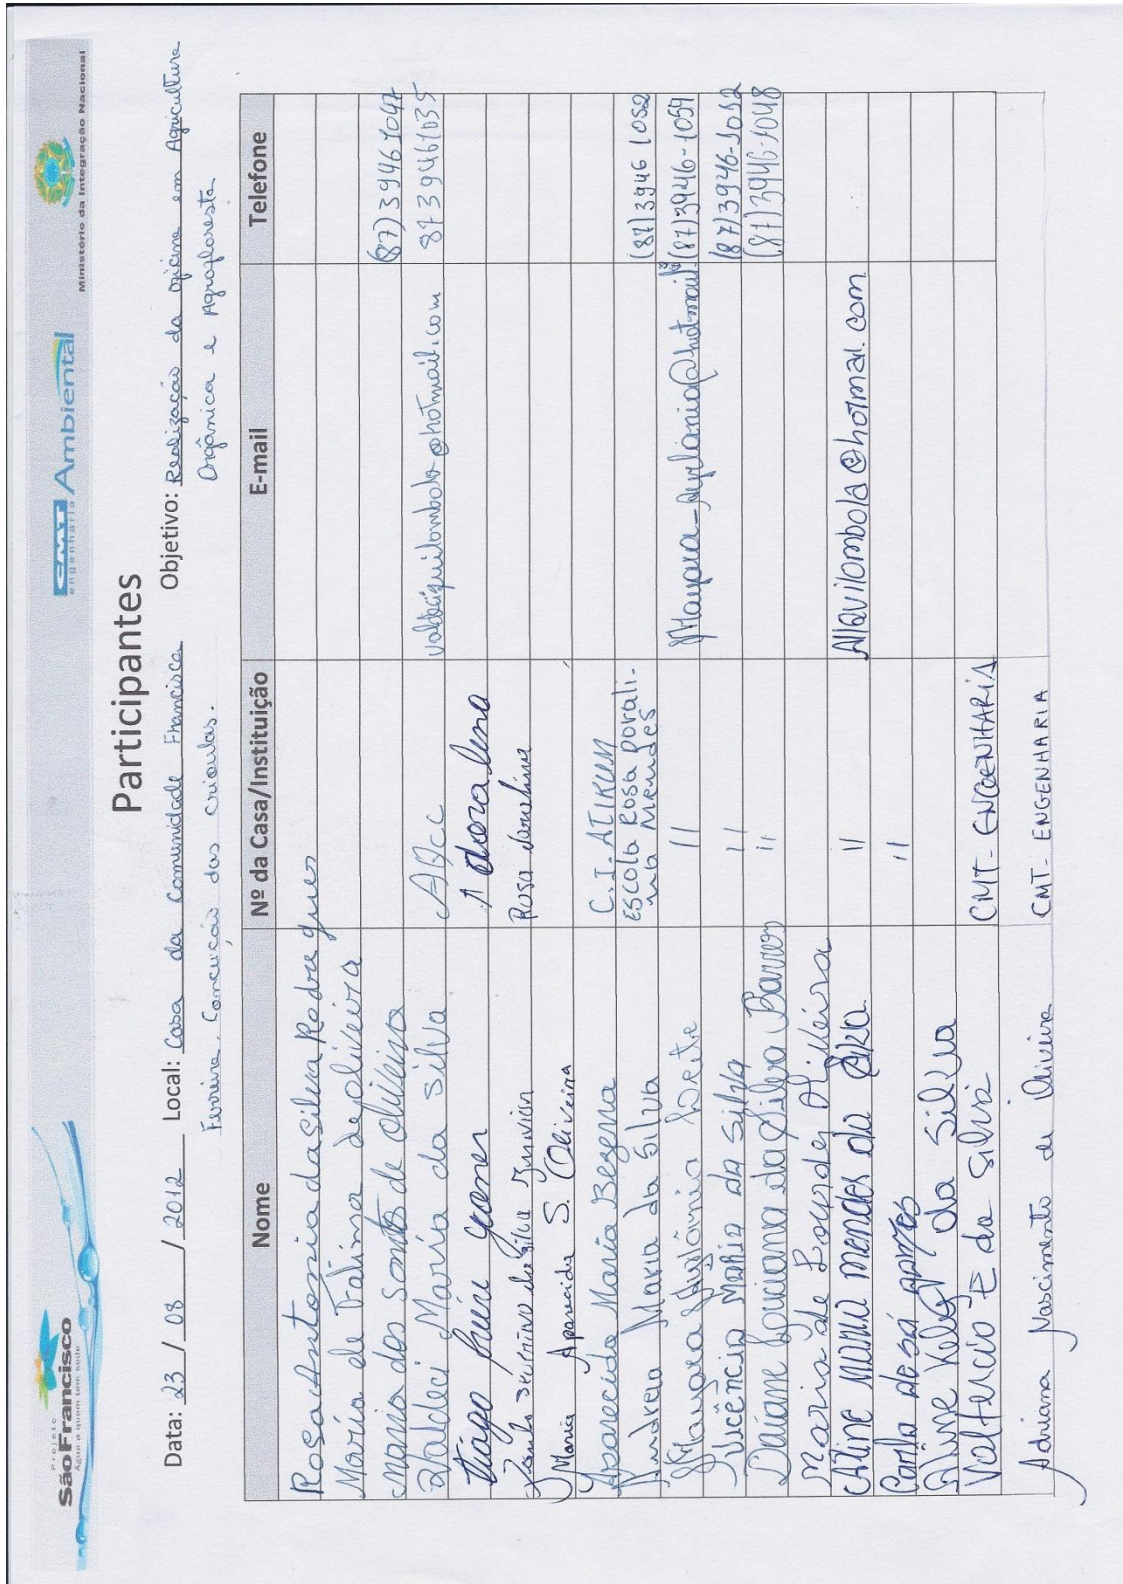 Projeto
São Francisco
Água a quem tem sede
CMT Ambiental
engenharia
Ministério da Integração Nacional
Participantes
Data: 23 / 08 / 2012 Local: Casa da Comunidade Francisca Objetivo: Realização da oficina em Agricultura
Ferreira. Conceição das crioulas. Orgânica e Agrofloresta
Nome Nº da Casa/Instituição E-mail Telefone
Rosa Antonia da silva Rodrigues
Maria de Fatima de oliveira
maria dos santos de oliveira (87) 3946 1047
Valdeci Maria da silva AQCC valdeciquilombola@hotmail.com 87 39461035
Thiago
da silva Rosa doralina
Maria Aparecida S. Oliveira
Aparecida Maria Bezerra C.I. ATIKUM
Andreia Maria da Silva ESCOLA Rosa Dorali- (87) 3946 1052
na Mendes
Mayara Leite 11 (87) 3946-1059
Vicência Maria da Silva 11 (87) 3946-1052
Daiane Luciana da Silva Barros 11 (87) 3946-1048
Maria de Lourdes Oliveira
Aline mendes da 11 Alquilombola@hotmal.com
Camila de sá 11
Aline da Silva
Valtercio E da Silva CMT- ENGENHARIA
Adriana Nascimento de Oliveira CMT- ENGENHARIA